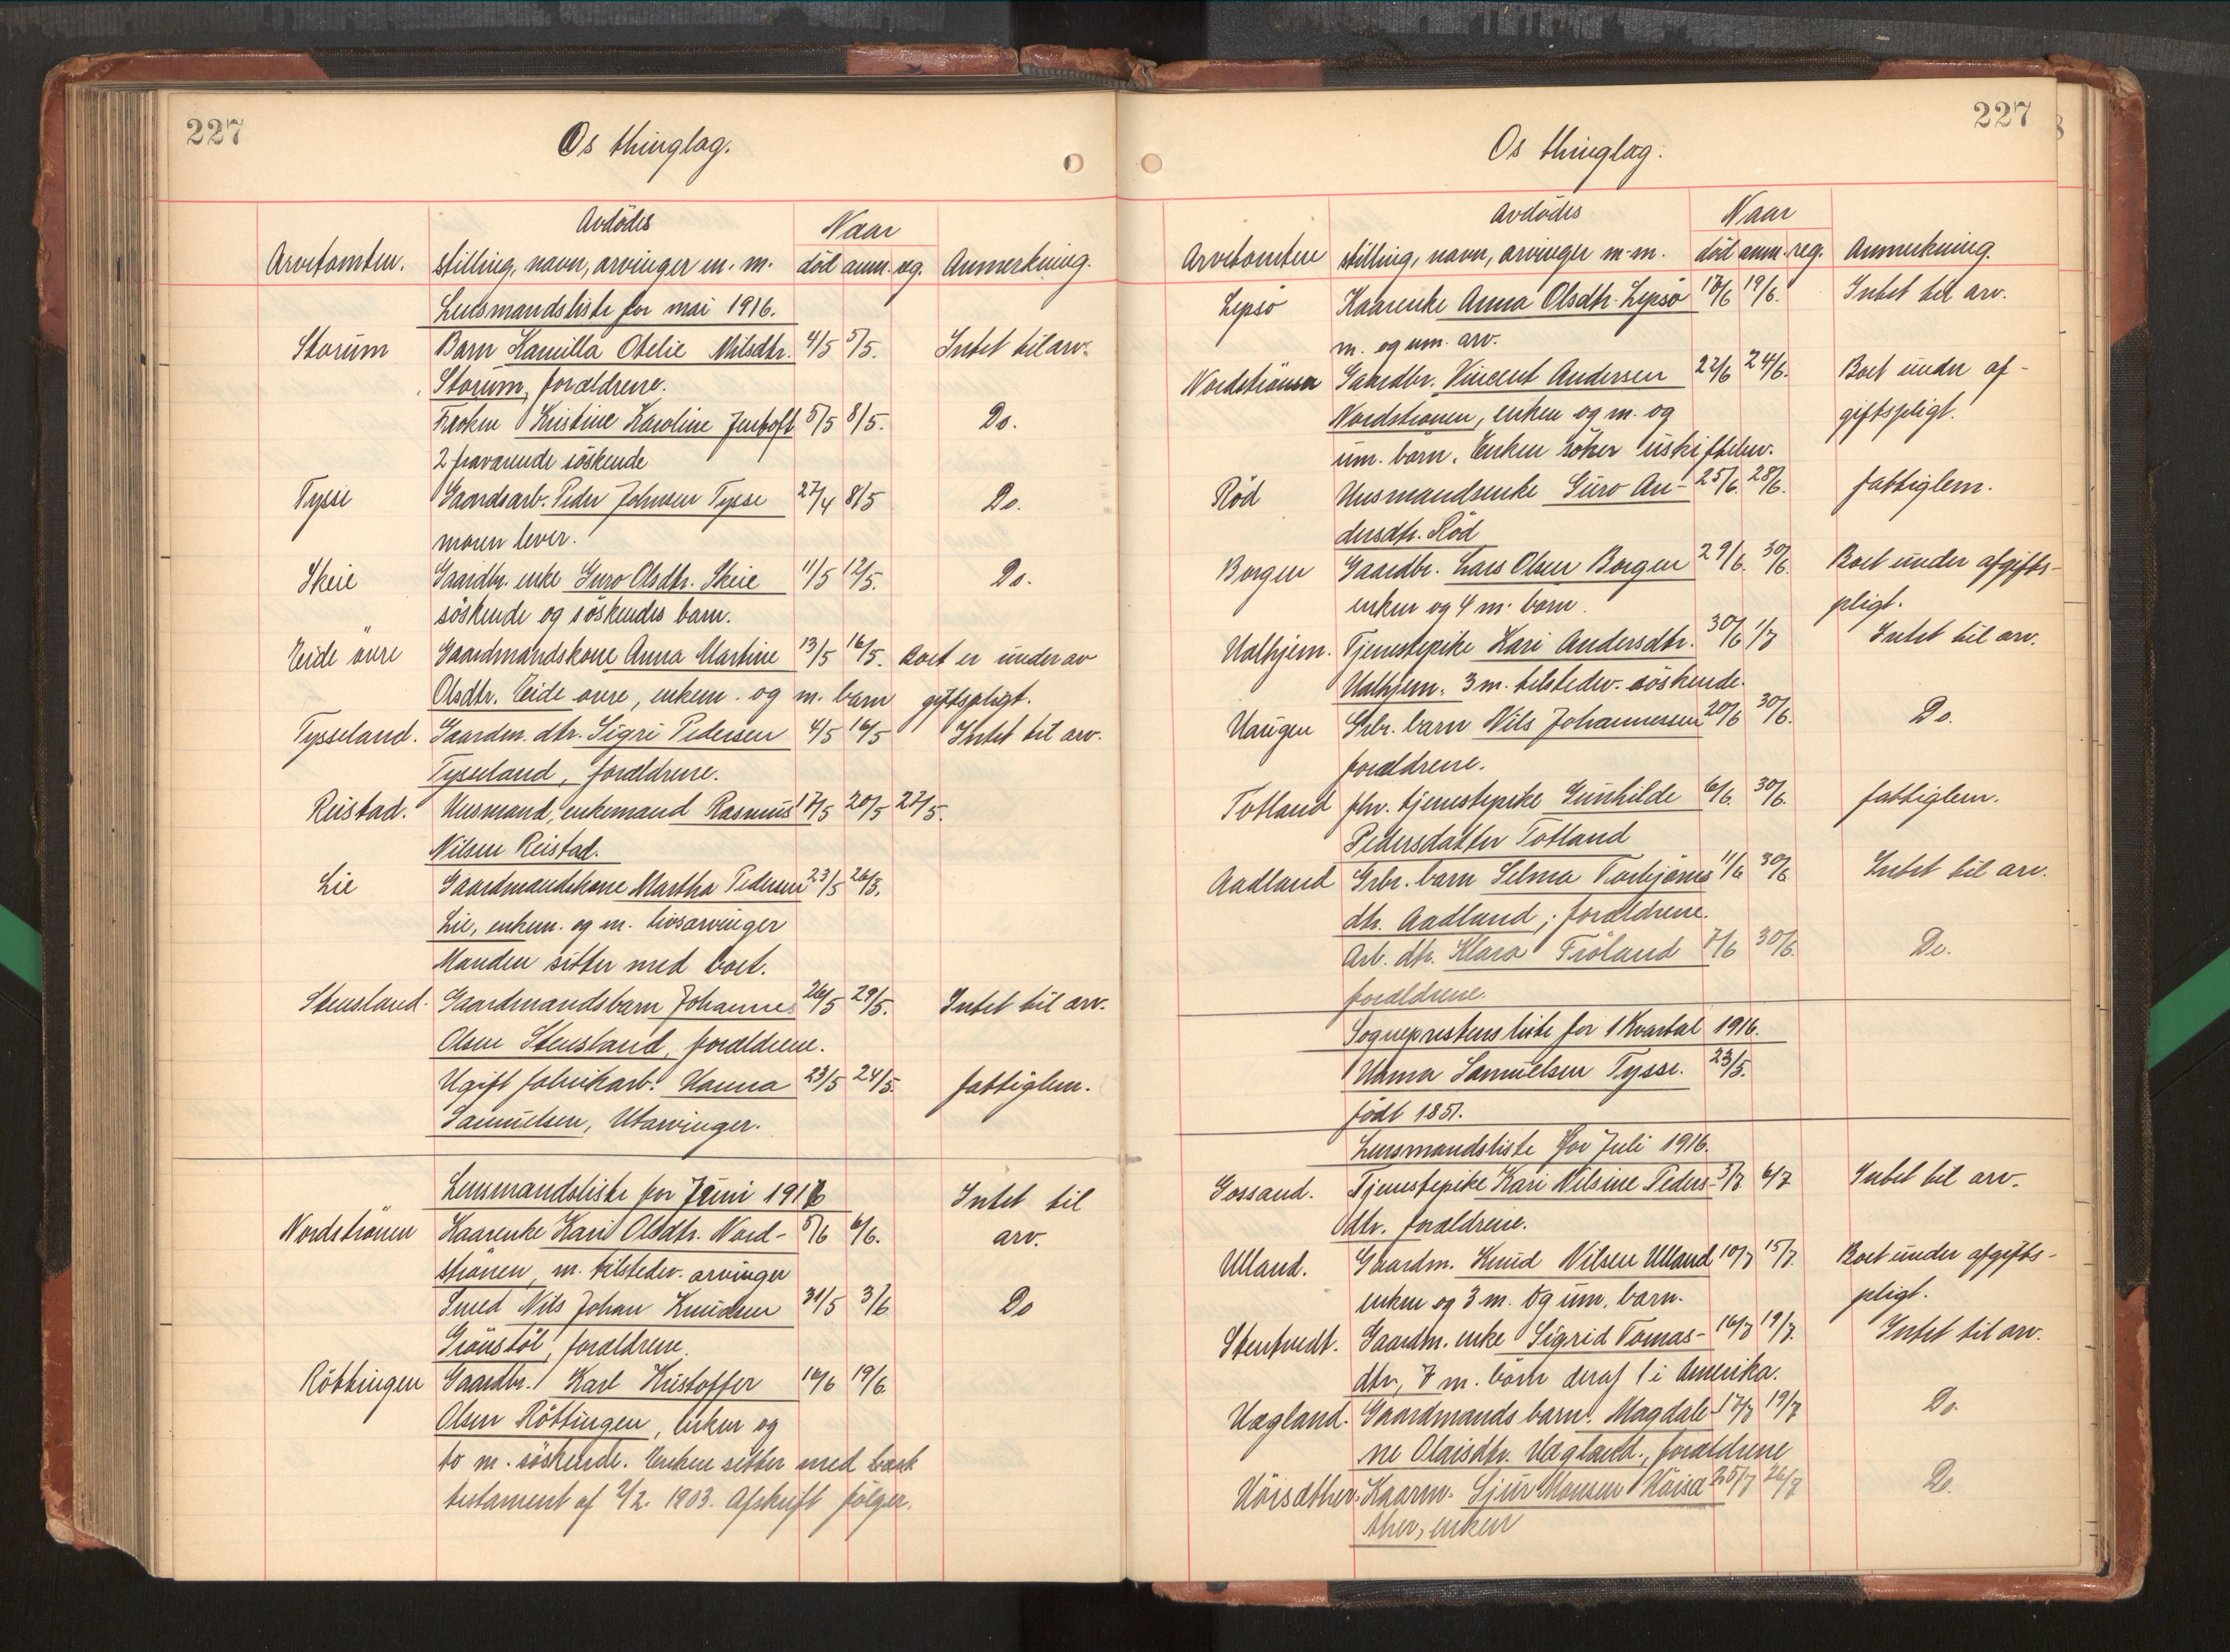 227
Os thinglag.
Avdödes Naar
Arvetomten. stilling, navn, arvinger m. m. död anm. reg. Anmerkning.
Lensmandsliste for mai 1916.
Storum Barn Kamilla Otelie Nilsdtr. 4/5 5/5. Intet til arv.
Storum, forældrene.
Fröken Kristine Karoline Jentoft 5/5 8/5. Do.
2 fraværende söskende
Tysse Gaardsarb. Peder Johnsen Tysse 27/4 8/5 Do.
moren lever.
Skeie Gaardbr. enke Guro Olsdtr. Skeie 11/5 12/5. Do.
söskende og söskendes barn.
Eide övre Gaardmandskone Anna Martine 13/5 16/5. Boet er under av
Olsdtr. Eide övre, enkem. og m. barn giftspligt.
Tysseland. Gaardm. dtr. Sigri Pedersen 4/5 16/5 Intet til arv.
Tysseland, forældrene.
Reistad. Husmand, enkemand Rasmus 17/5 20/5 27/5.
Nilsen Reistad.
Lie Gaardmandskone Martha Pedersen 23/5 26/5.
Lie, enkem. og m. livsarvinger
Manden sitter med boet.
Stensland. Gaardmandsbarn Johannes 26/5 29/5. Intet til arv.
Olsen Stensland, forældrene.
Ugift fabrikarb. Hanna 23/5 24/5. fattiglem.
Samuelsen, Utarvinger.
Lensmandsliste for Juni 1916 Intet til
Nordströnen Kaarenke Kari Olsdtr. Nord- 5/6 6/6. arv.
strönen, m. tilstedev. arvinger
Smed Nils Johan Knudsen 31/5 3/6 Do
Grönstöl, forældrene.
Röttingen Gaardbr. Karl Kristoffer 16/6 19/6
Olsen Röttingen, enken og
to m. söskende. Enken sitter med
testament af 2/2. 1903. Afskrift fölger.
227
Os thinglag.
Avdödes Naar
Arvetomten stilling, navn, arvinger m. m. död anm. reg. Anmerkning.
Lepsö Kaarenke Anna Olsdtr. Lepsö 18/6 19/6. Intet til arv.
m. og um. arv.
Nordströnen Gaardbr. Vincent Andersen 22/6 24/6. Boet under af-
Nordstronen, enken og m. og giftspligt.
um. barn. Enken söker uskiftebev.
Röd Husmandsenke Guro An- 25/6. 28/6. fattiglem.
dersdtr. Röd
Borgen Gaardbr. Lars Olsen Borgen 29/6. 30/6. Boet under afgifts-
enken og 4 m. barn. pligt.
Halhjem. Tjenestepike Kari Andersdtr. 30/6 1/7 Intet til arv.
Halhjem. 3 m. tilstedev. söskende.
Haugen Grbr. barn Nils Johannessen 20/6 30/6. Do.
forældrene.
Totland fhv. tjenestepike Gunhilde 6/6. 30/6. fattiglem.
Pedersdatter Totland
Aadland Grbr. barn Selma Torbjörns 11/6 30/6 Intet til arv.
dtr. Aadland; forældrene.
Arb. dtr. Klara Fröland 7/6 30/6. Do.
forældrene.
Sogneprestens liste for 1 Kvartal 1916.
Hanna Samuelsen Tysse. 23/5.
födt 1851.
Lensmandsliste for Juli 1916.
Gossand. Tjenestepike Kari Nilsine Peders- 3/7 6/7 Intet til arv.
dtr. forældrene.
Ulland. Gaardm. Knud Nilsen Ulland 10/7 15/7. Boet under afgifts-
enken og 3 m. og um. barn. pligt.
Stentvedt. Gaardm. enke Sigrid Tomas- 16/7 19/7. Intet til arv.
dtr, 7 m. börn deraf 1 i Amerika.
Hægland. Gaardmands barn. Magdale- 17/7 19/7 Do.
ne Olaisdtr. Hægland., forældrene
Höisæther. Kaarm. Sjur Monsen Höisæ 25/7 26/7 Do.
ther, enken